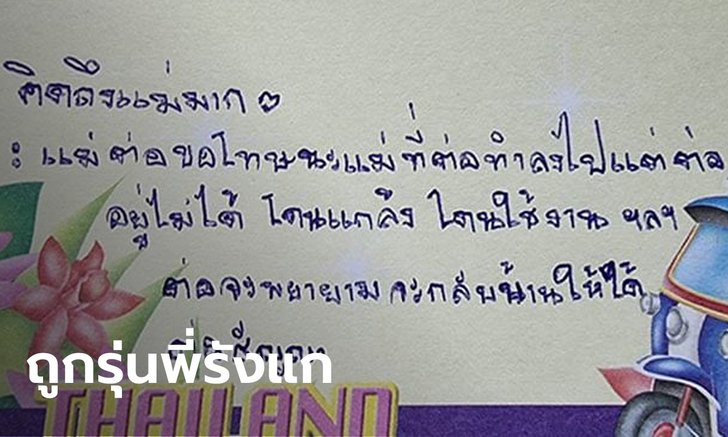 คิดถึงแม่มาก ๆ
: แม่ ต่อขอโทษนะแม่ที่ต่อทำลงไปแต่ต่อ
อยู่ไม่ได้ โดนแกล้ง โดนใช้งาน ฯลฯ
ต่อจะพยายามจะกลับบ้านให้ได้
สัญญา
ถูกรุ่นพี่รังแก
THAILAND